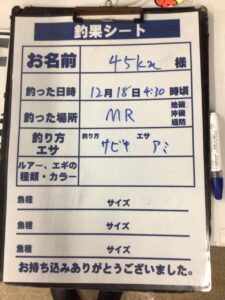 釣果シート
お名前 45km 様
釣った日時 12月18日4:30時頃
釣った場所 MR 地磯 沖磯 堤防
釣り方 エサ 釣り方 サビキ エサ アミ
ルアー、エギの種類・カラー
魚種 サイズ
魚種 サイズ
魚種 サイズ
お持ち込みありがとうございました。